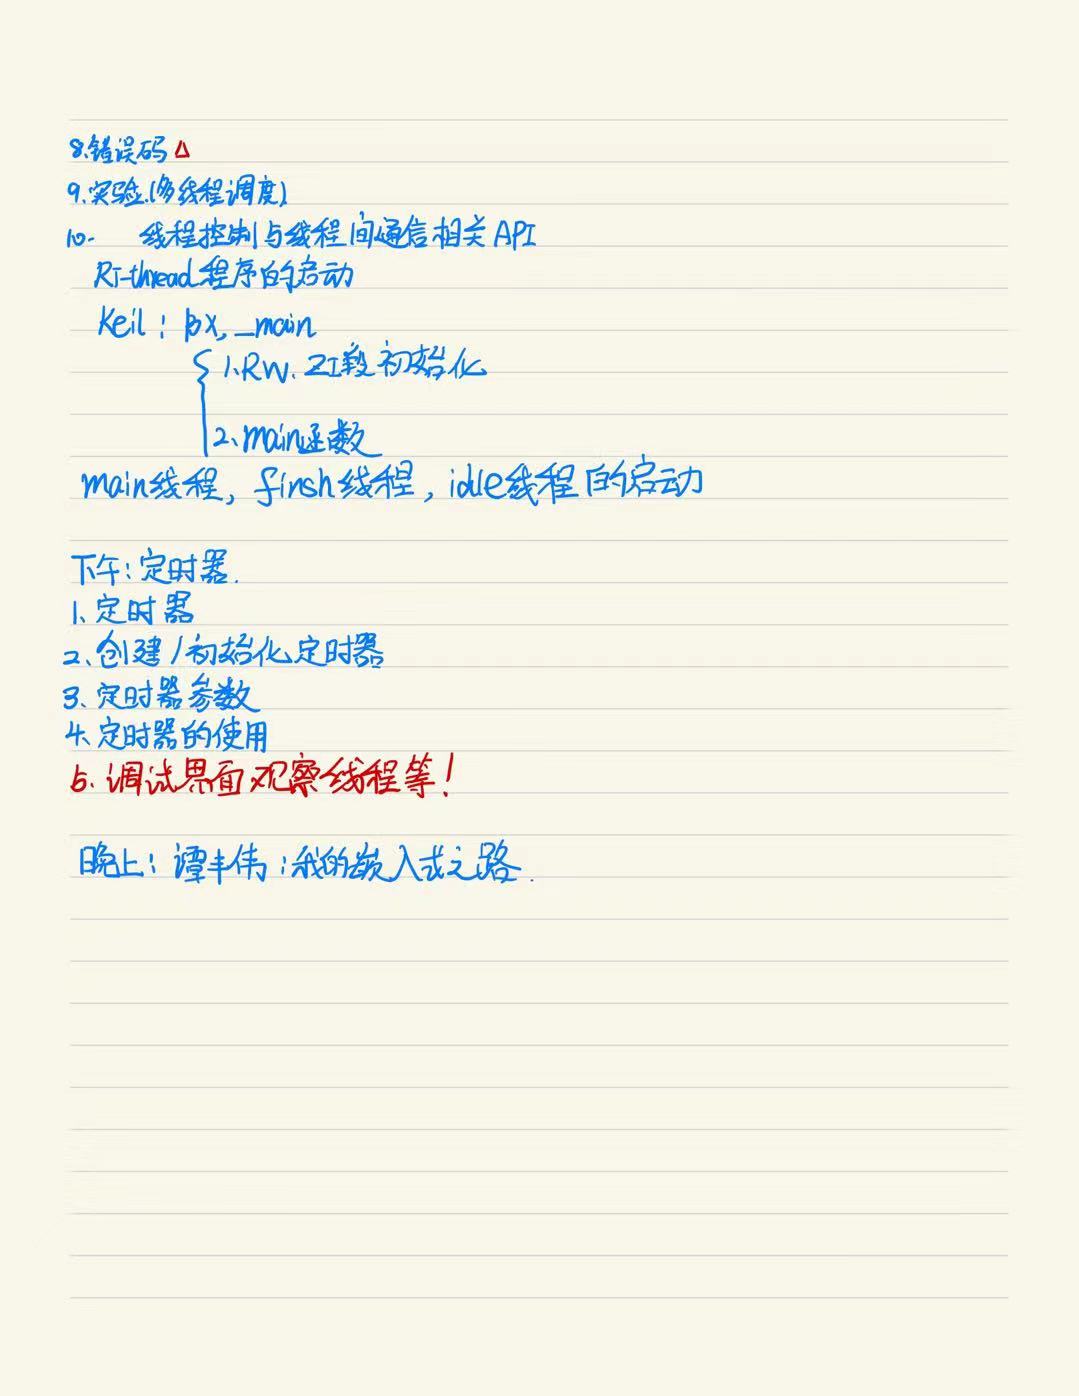 8.错误码 △
9.实验.(多线程调度)
10. 线程控制与线程间通信相关API
RT-thread程序的启动
Keil: px, _main
1.RW.ZI段初始化
2.main函数
main线程, finsh线程, idle线程的启动
下午:定时器.
1.定时器
2.创建/初始化定时器
3.定时器参数
4.定时器的使用
5.调试界面观察线程等!
晚上:谭丰伟:我的嵌入式之路.